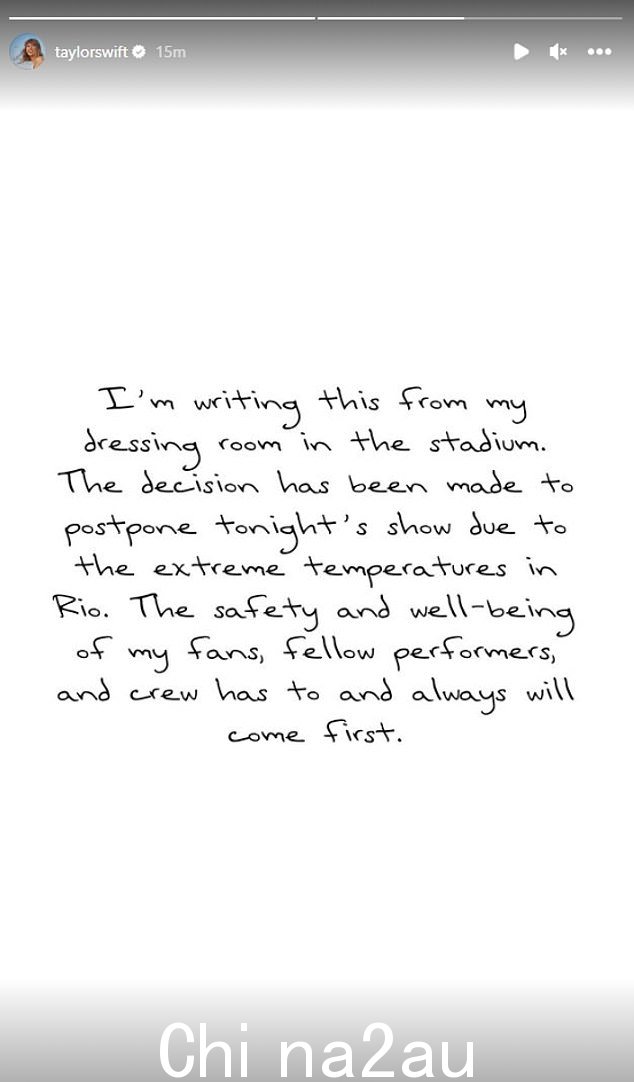 taylorswift 15m
I'm writing this from my
dressing room in the stadium.
The decision has been made to
postpone tonight's show due to
the extreme temperatures in
Rio. The safety and well-being
of my fans, fellow performers,
and crew has to and always will
come first.
Chi na2au